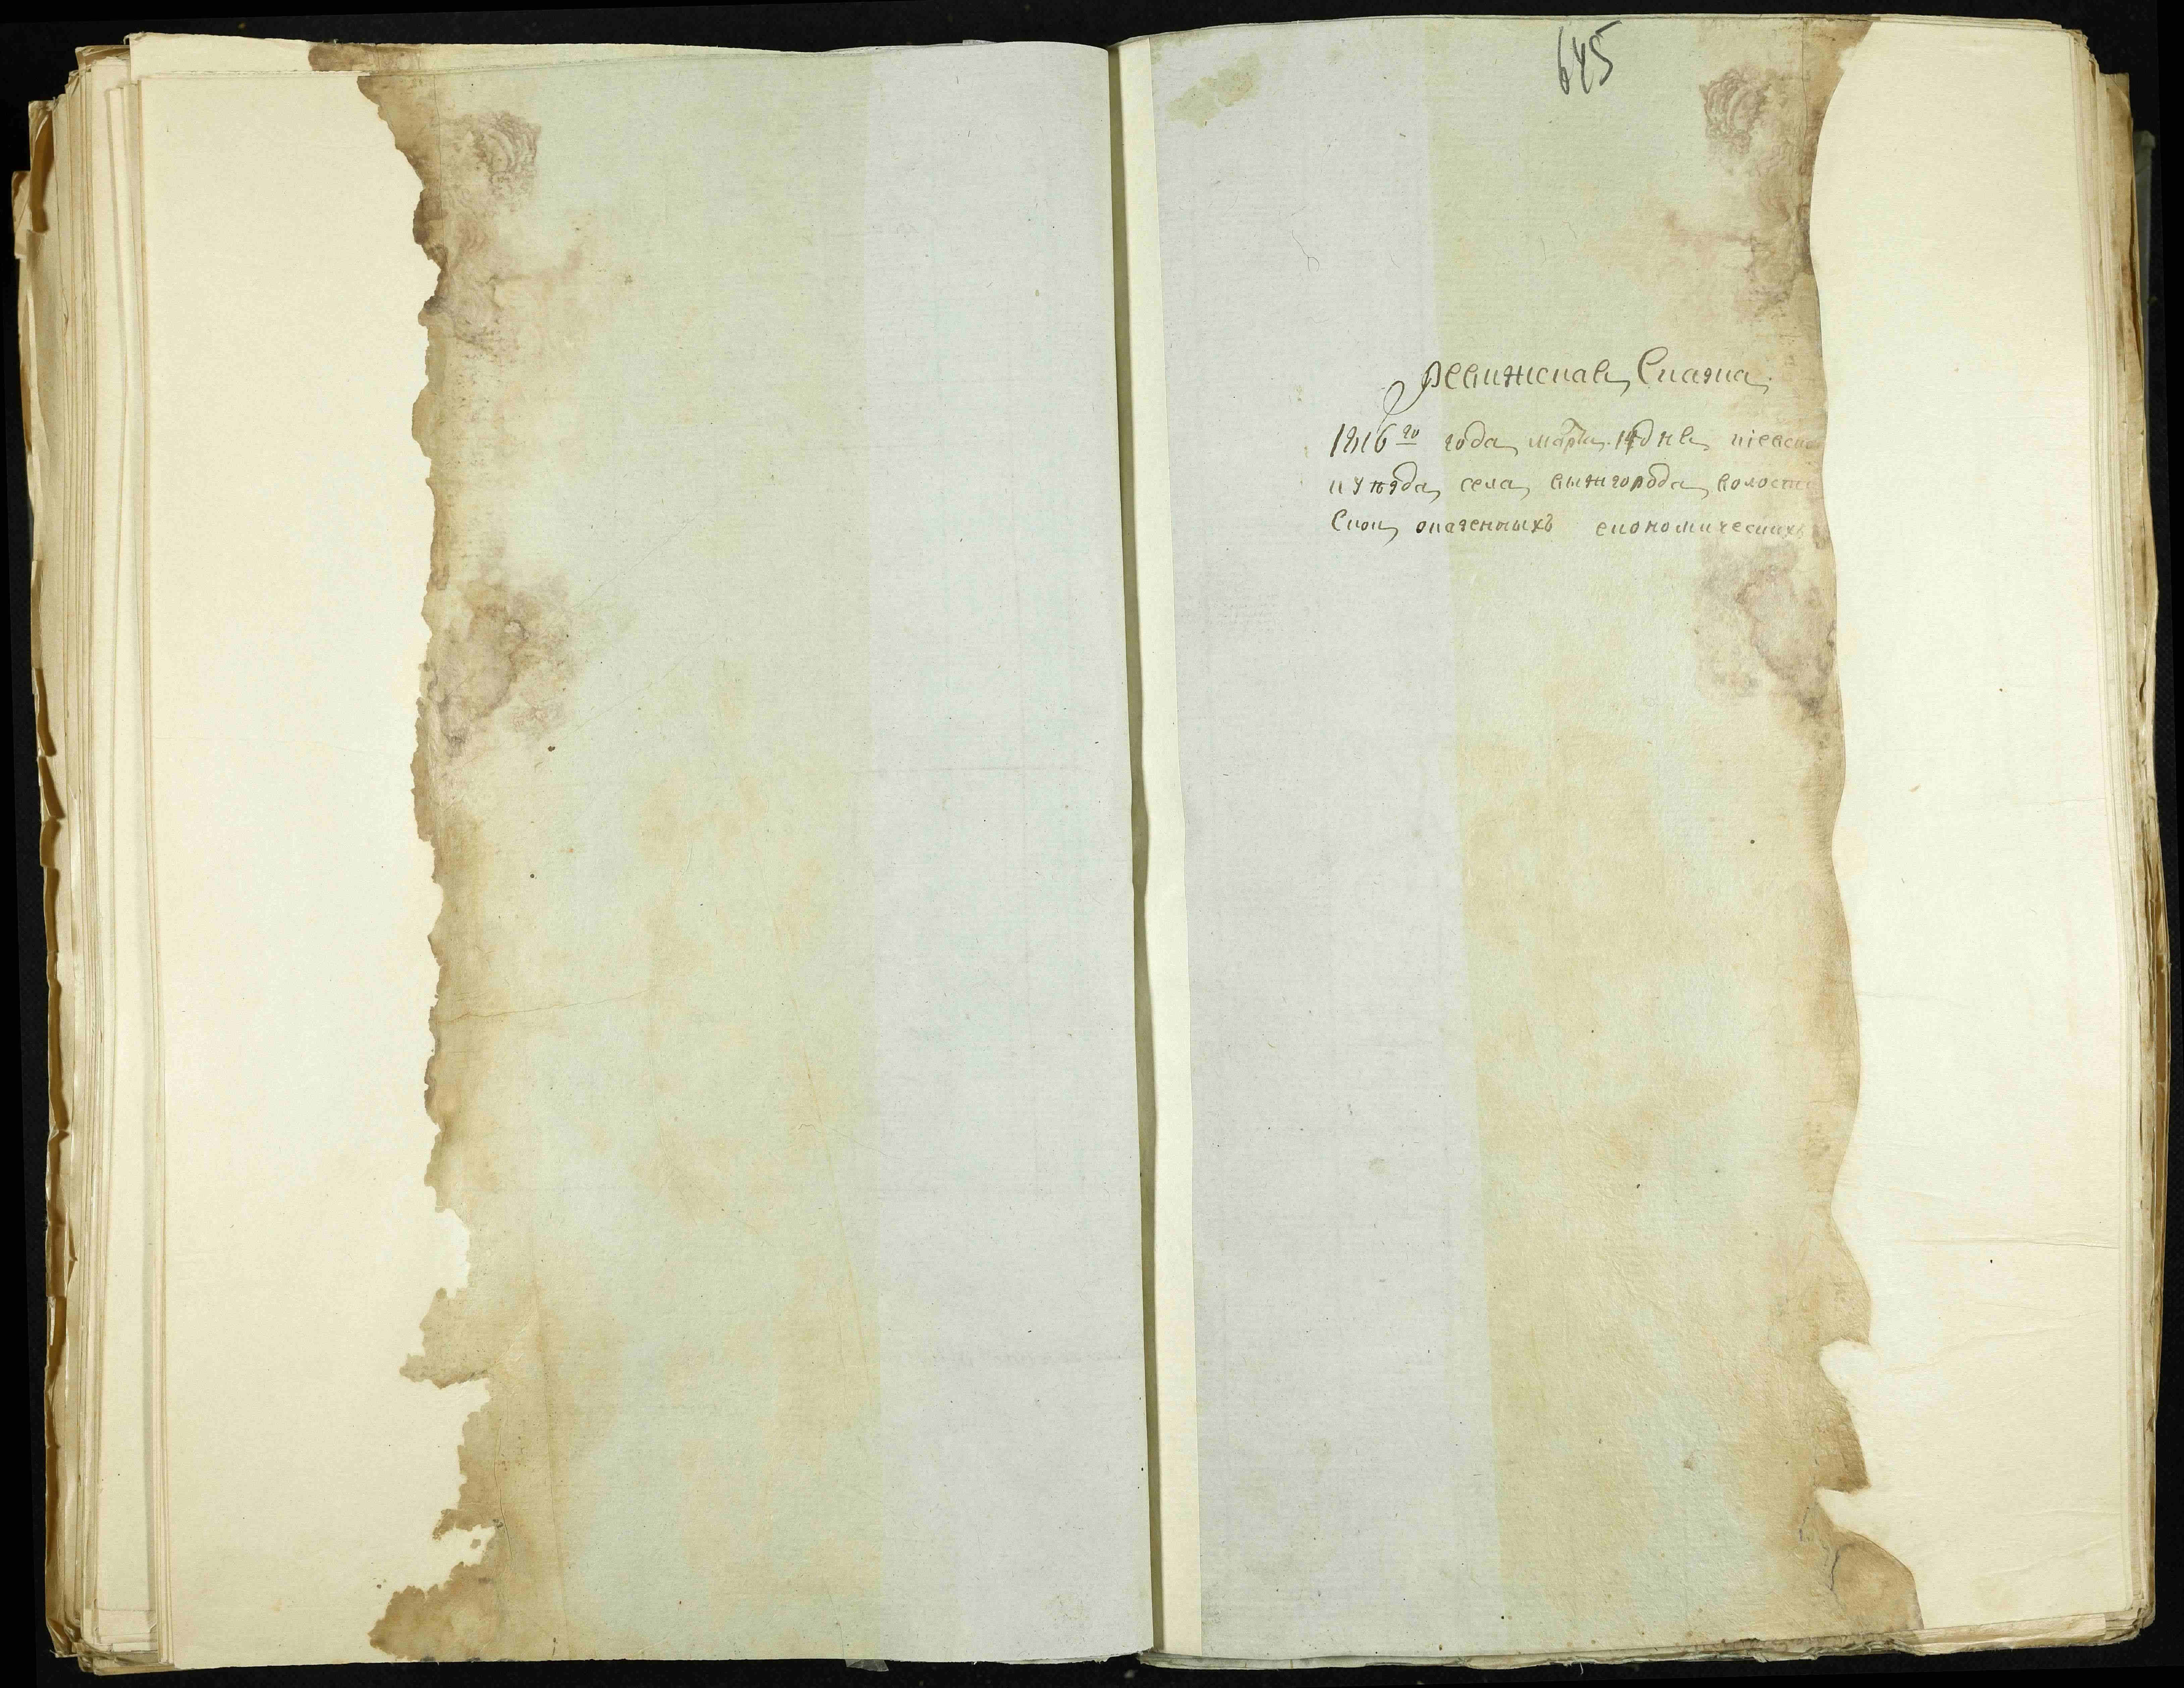 645
Ревижская Сказка
1816го года марта 14 дня киевск
уезда села вышгорода волости
казенныхъ економическихъ